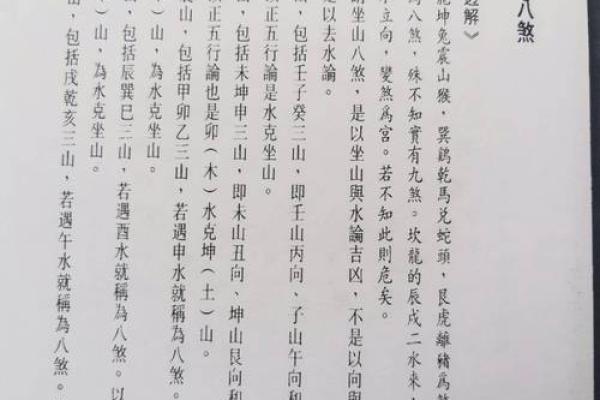 八煞
解》
坤兔震山猴，巽鷄乾馬兌蛇頭，艮虎離豬爲煞
為八煞，殊不知實有九煞。坎龍的辰戌二水來，
立向，變煞爲宮。若不知此則危矣。
坐山八煞，是以坐山與水論吉凶，不是以向與
是以去水論。
，包括壬子癸三山，即壬山丙向、子山午向和
正五行論是水克坐山。
，包括未坤申三山，即未山丑向、坤山艮向和
正五行論也是卯（木）水克坤（土）山。
山，包括甲卯乙三山，若遇申水就稱為八煞。
）山，為水克坐山。
，包括辰巽巳三山，若遇酉水就稱為八煞。以
）山，為水克坐山。
，包括戌乾亥三山，若遇午水就稱為八煞。